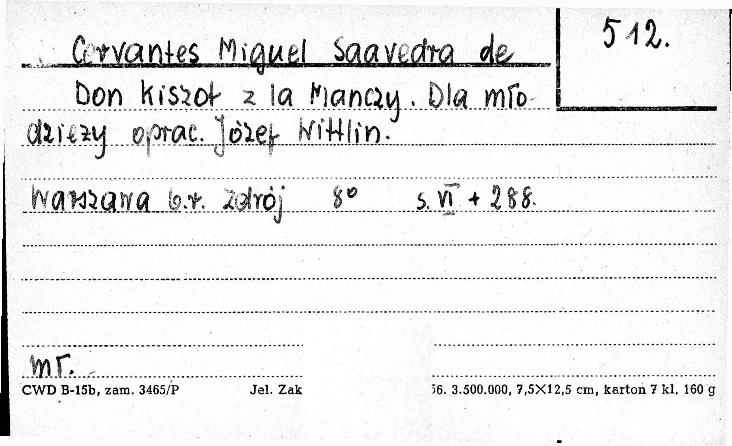 512.
Cervantes Miguel Saavedra de
Don Kiszot z la Manczy. Dla mło-
dzieży oprac. Józef Wittlin.
Warszawa b.r. Zdrój 8° s. VI + 288.
mł.
CWD B-15b, zam. 3465/P Jel. Zak 56. 3.500.000, 7,5×12,5 cm, karton 7 kl. 160 g